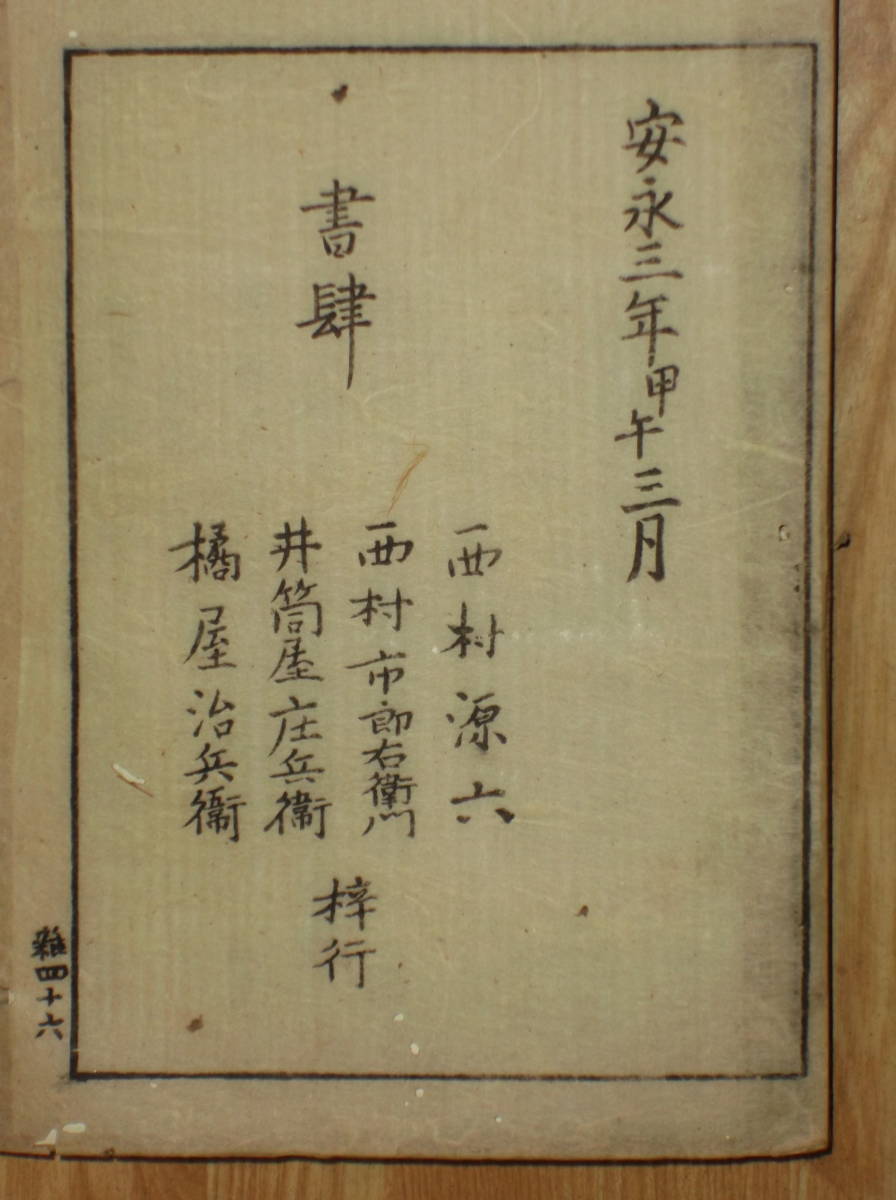 安永三年甲午三月
書肆
西村源六
西村市郎右衛門
井筒屋庄兵衛
橘屋治兵衛
梓行
雜四十六